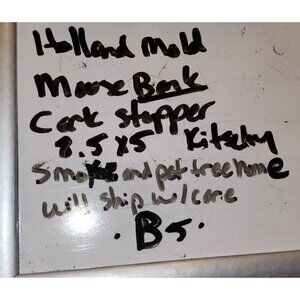 Holland Mold
Mouse Bank
Cork stopper
8.5 x 5 Kitschy
smoke and pet free home
will ship w/care
· B5 ·